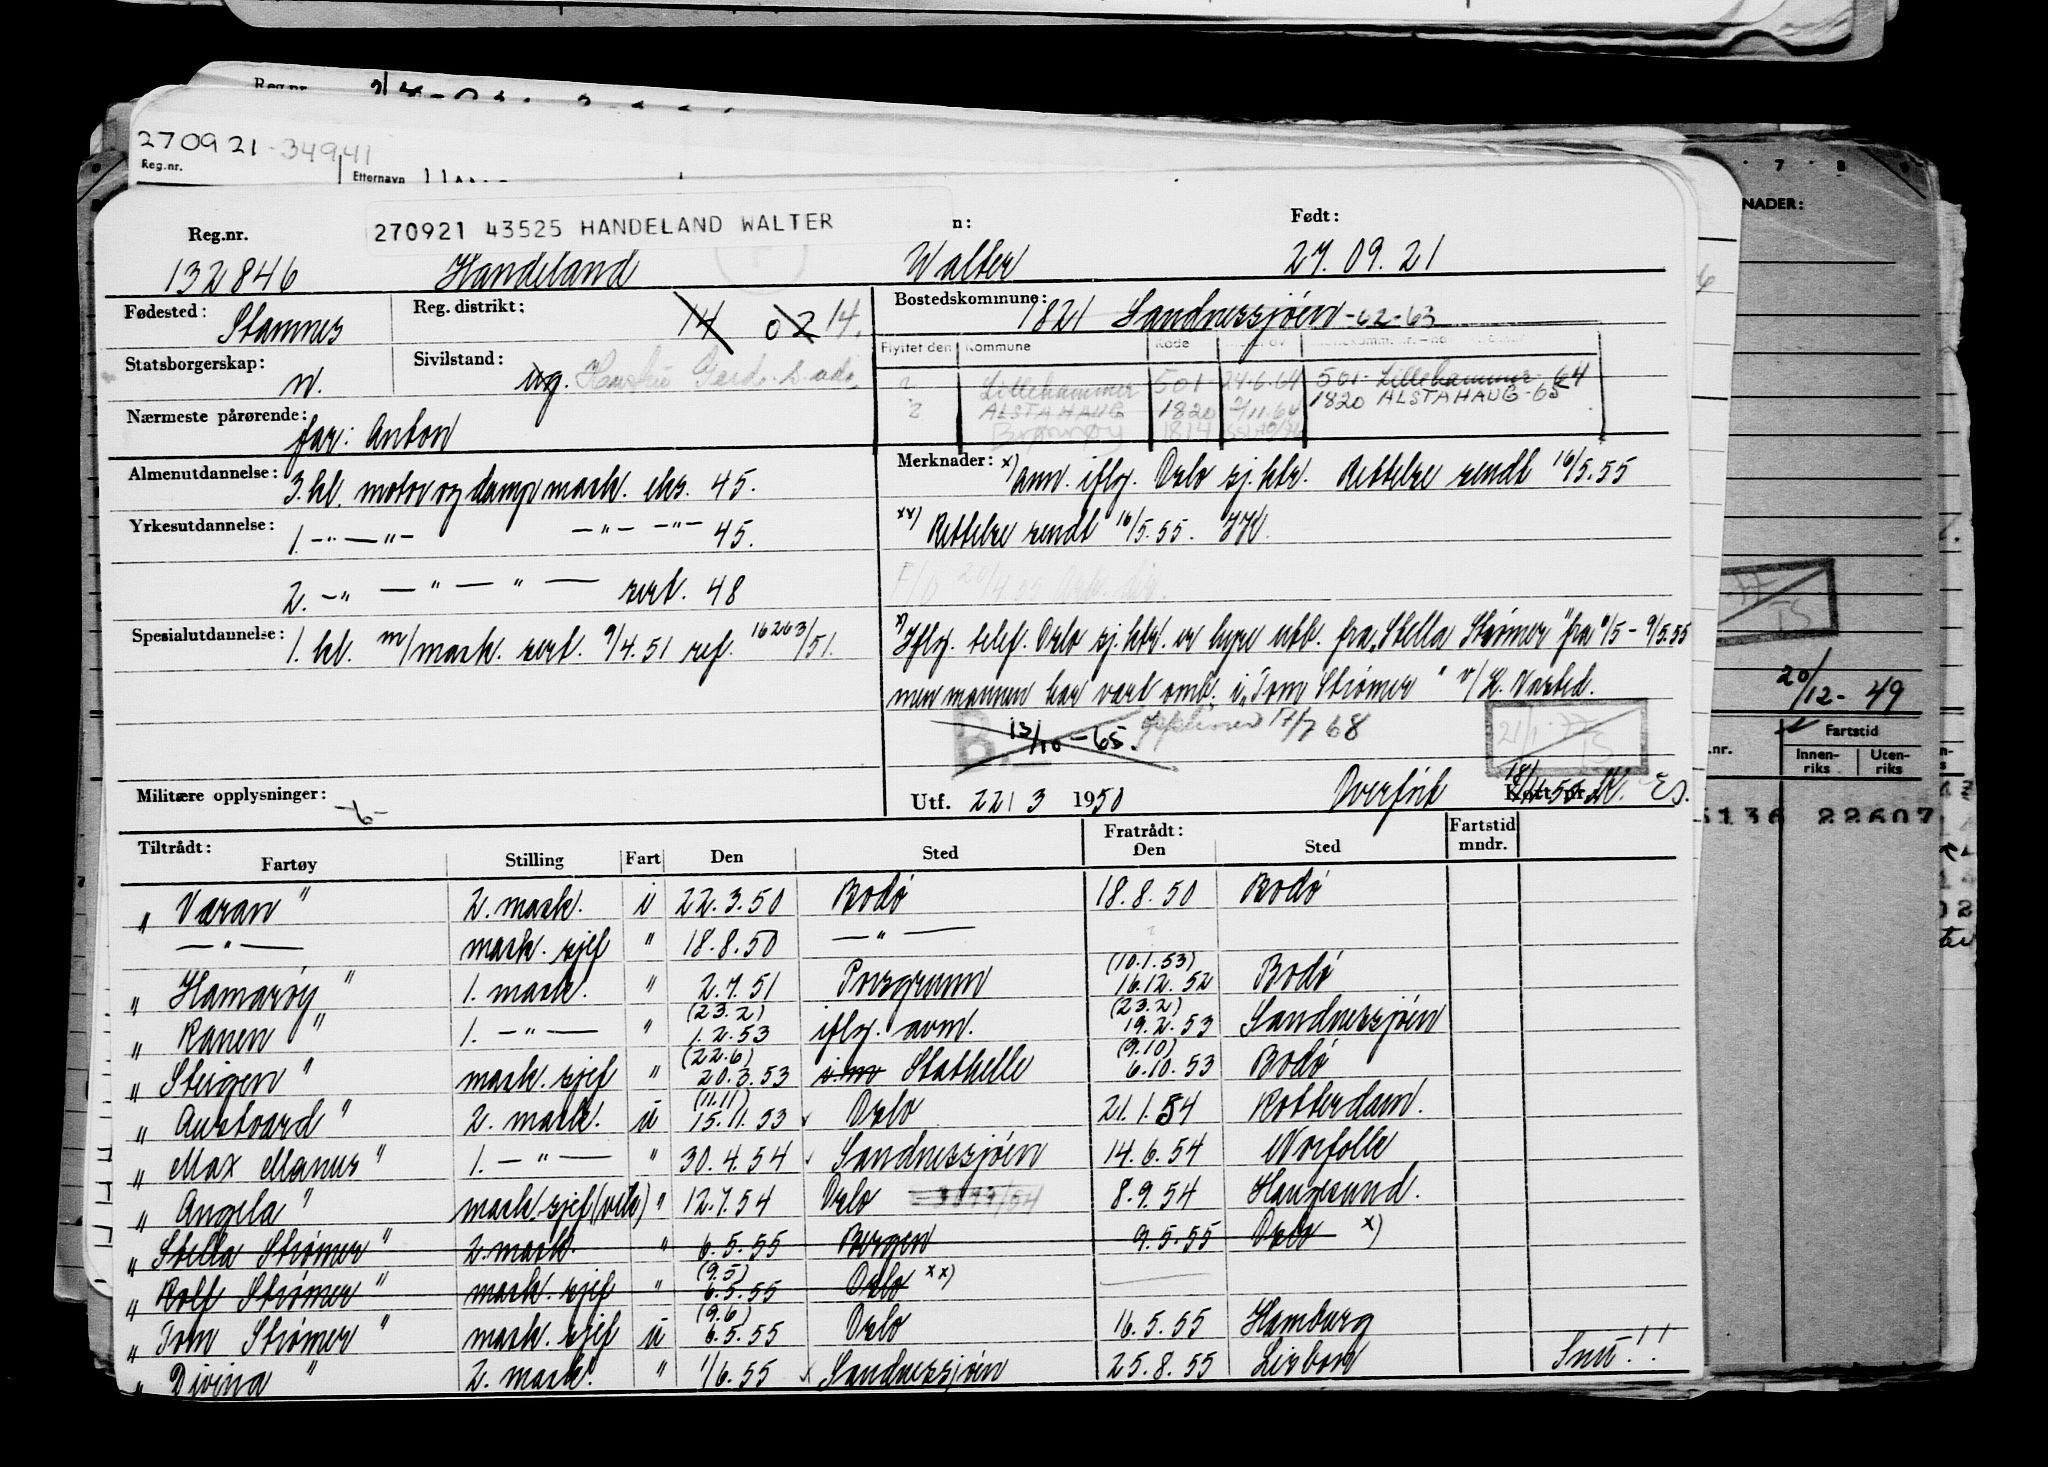 270921-34941
Reg.nr.
Etternavn
270921 43525 HANDELAND WALTER
Reg.nr. n: Født:
132846 Handeland Walter 27.09.21
Fødested: Stamnes Reg. distrikt: 14 02 14. Bostedskommune: 1821 Sandnessjöen -62-63
Statsborgerskap: n. Sivilstand: ug. Flyttet den Kommune Kode
2 Lillehammer 501- 24.6.64 501- Lillehammer-64
2 ALSTAHAUG 1820 2/11.64 1820 ALSTAHAUG-65
Brønnøy 1814
Nærmeste pårørende: far: Anton
Almenutdannelse: 3. kl. motor og damp mask. eks. 45.
Merknader: x) Ann. iflg. Oslo sj.ktr. Rettelse sendt 16/5.55
Yrkesutdannelse: 1. -"- -"- -"- -"- 45.
xx) Rettelse sendt 16/5.55.
2. -"- -"- -"- sert. 48
F/O 20/4.55
Spesialutdannelse: 1. kl. m/mask. sert. 9/4.51 ref. 16263/51.
x) Iflg. telef. Oslo sj.ktr. er hyre utb. fra "Stella Strømer" fra 6/5-9/5.55
men mannen har vært omb. i "Tom Strømer"
13/10-65. 17/7 68
21/1-77 TS
Militære opplysninger: -6-
Utf. 22/3 1950 Overført Kort nr.
Tiltrådt: Fratrådt: Fartstid
Fartøy Stilling Fart Den Sted Den Sted mndr.
"Væran" 2. mask. i 22.3.50 Bodö 18.8.50 Bodö
-"- mask. sjef " 18.8.50 -"-
"Hamarøy" 1. mask. " 2.7.51 Porsgrunn (10.1.53) 16.12.52 Bodö
"Ranen" 1. -"- " (23.2) 1.2.53 iflg. avm. (23.2) 19.2.53 Sandnessjöen
"Steigen" mask. sjef " (22.6) 20.3.53 i.m Stathelle (9.10) 6.10.53 Bodö
"Austvard" 2. mask. u (11.11) 15.11.53 Oslo 21.1.54 Rotterdam.
"Max Manus" 1. -"- " 30.4.54 Sandnessjöen 14.6.54 Norfolk
"Angela" mask. sjef (vik) " 12.7.54 Oslo 8.9.54 Haugesund.
"Stella Strømer" 2. mask. " 6.5.55 Bergen 9.5.55 Oslo x)
"Rolf Strømer" mask. sjef " (9.5) 6.5.55 Oslo xx)
"Tom Strømer" mask. sjef u (9.6) 6.5.55 Oslo 16.5.55 Hamburg
"Divina" 2. mask. " 1/6.55 Sandnessjöen 25.8.55 Lisbon Snu!!
7 8
NADER:
20/12-49
Fartstid
Innen-riks Uten-riks
5136 22607